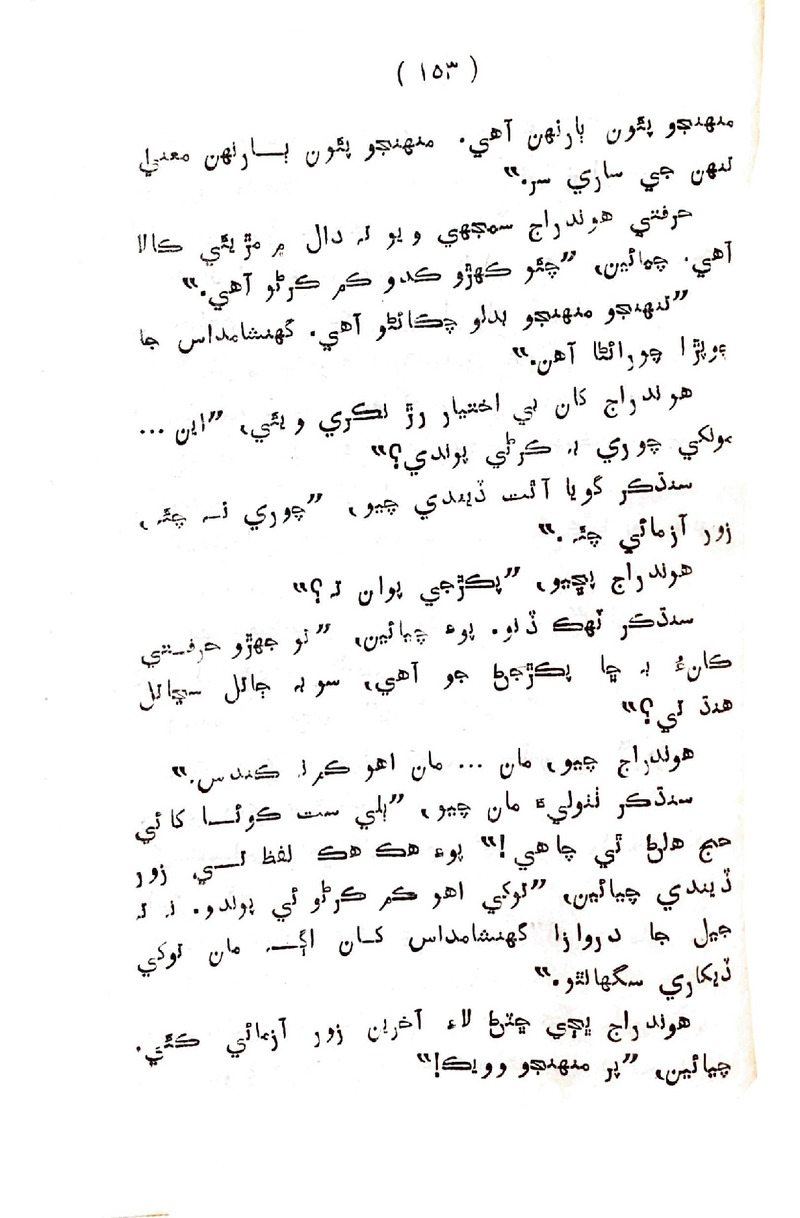 ( ۱۵۳ )
منهنجو پٿون ٻارنهن آهي. منهنجو پٿون ٻـــارنهن معنيٰ
تنهن جي ساري سر.“
حرفتي هوندراج سمجهي ويو ته دال ۾ مڙيئي ڪالا
آهي. چيائين، ”چئو ڪهڙو ڪدو ڪم ڪرڻو آهي.“
”تنهنجو منهنجو بدلو چڪائڻو آهي. گهنشامداس جا
چوپڙا چورائڻا آهن.“
هوندراج کان بي اختيار رڙ نڪري ويئي، ”اين ...
مونکي چوري به ڪرڻي پوندي؟“
سنڌڪر گويا آٿت ڏيندي چيو، ”چوري نـه چئه،
زور آزمائي چئه.“
هوندراج پڇيو، ”پڪڙجي پوان ته؟“
سنڌڪر ٽهڪ ڏنو. پوءِ چيائين، ”تو جهڙو حرفــتي
ڪانءُ به ڇا پڪڙجڻ جو آهي، سو به ڄاتل سڃاتل
هنڌ تي؟“
هوندراج چيو، مان ... مان اهو ڪم نه ڪندس.“
سنڌڪر ٺٺوليءَ مان چيو، ”ٻلي ست ڪوئــا کائي
حج هلڻ ٿي چاهي!“ پوءِ هڪ هڪ لفظ تـــي زور
ڏيندي چيائين، ”توکي اهو ڪم ڪرڻو ئي پوندو. نه ته
جيل جا دروازا گهنشامداس کــان اڳـــ مان توکي
ڏيکاري سگهانٿو.“
هوندراج ڀڄي ڇٽڻ لاءِ آخرين زور آزمائي ڪئي.
چيائين، ”پر منهنجو وويڪ!“